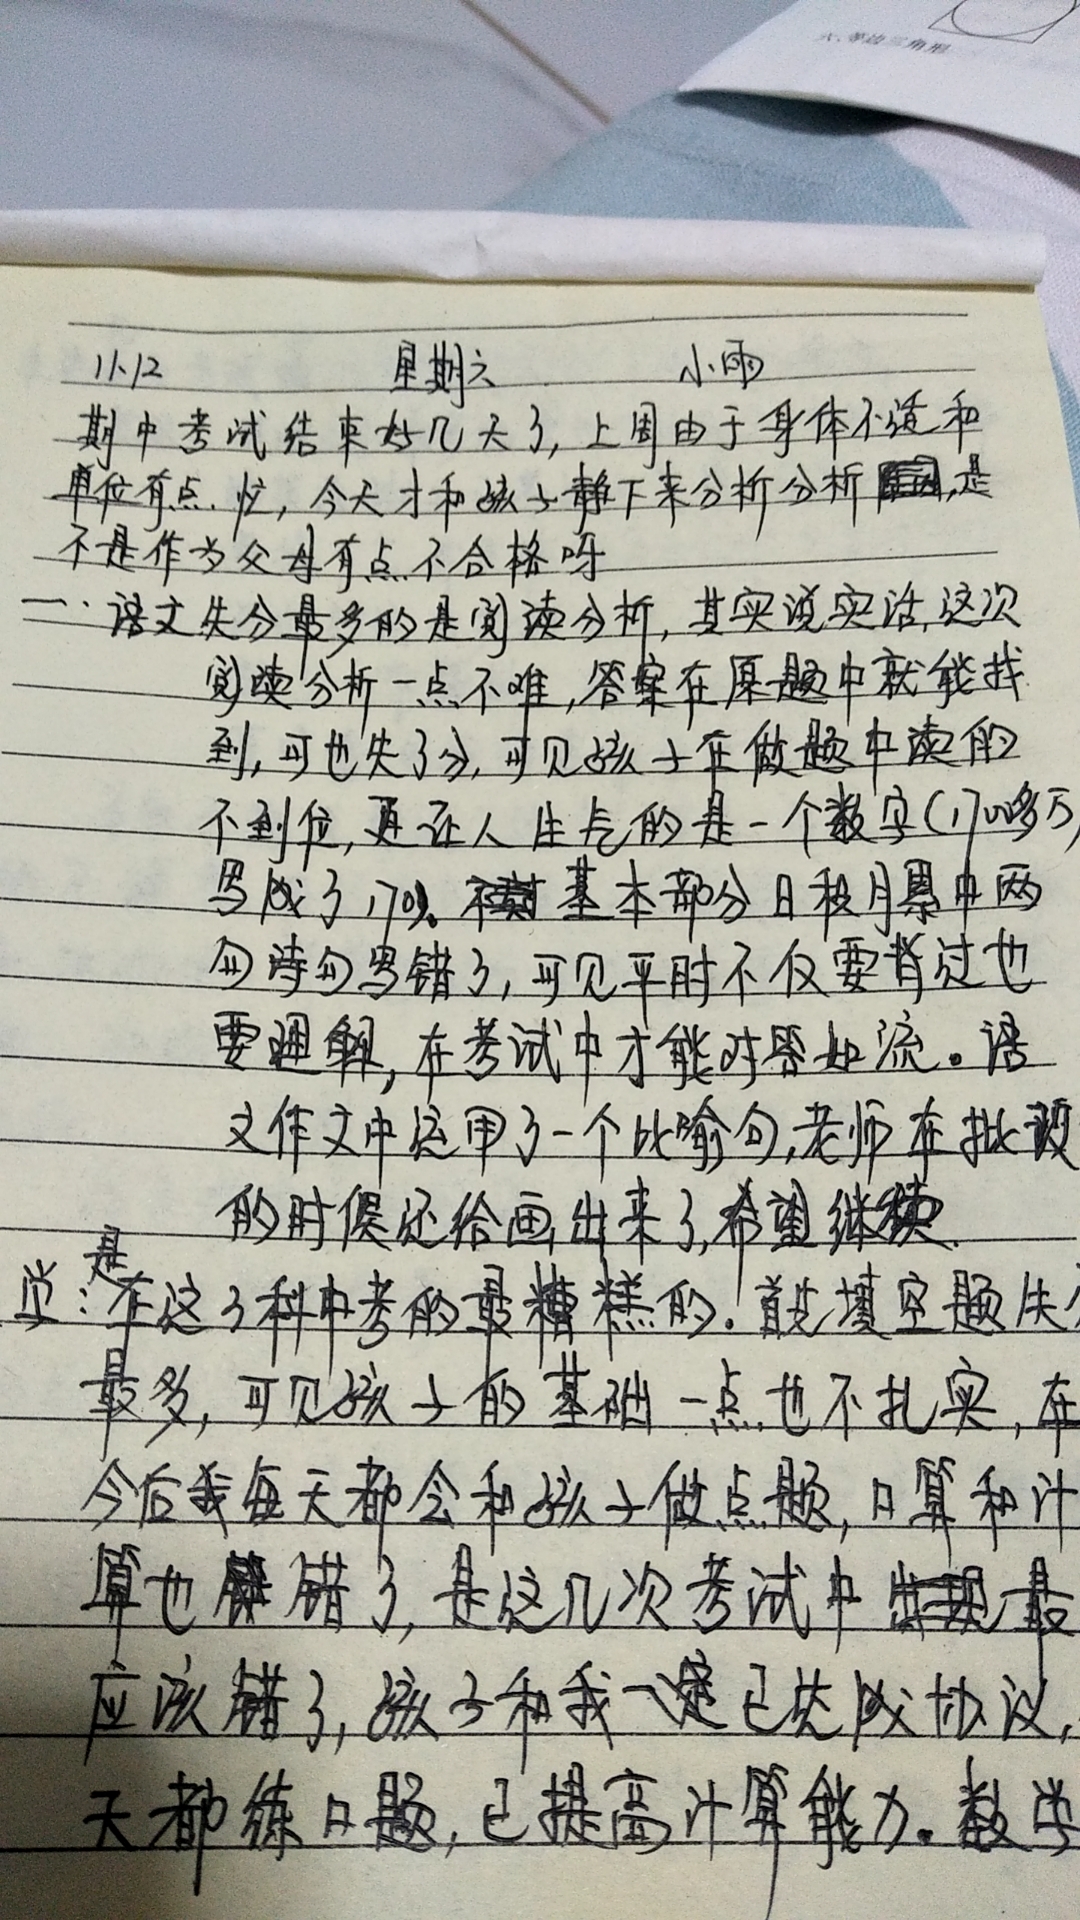 六、等边三角形
11.12 星期六 小雨
期中考试结束好几天了,上周由于身体不适和
单位有点忙,今天才和孩子静下来分析分析,是
不是作为父母有点不合格呀
一.语文失分最多的是阅读分析,其实说实话,这次
阅读分析一点不难,答案在原题中就能找
到,可也失了分,可见孩子在做题中读的
不到位,更让人生气的是一个数字(1700多万)
写成了170。基本部分日积月累中两
句诗句写错了,可见平时不仅要背过也
要理解,在考试中才能对答如流。语
文作文中运用了一个比喻句,老师在批改
的时候还给画出来了,希望继续.
学:是在这3科中考的最糟糕的.首先填空题失分
最多,可见孩子的基础一点也不扎实,在
今后我每天都会和孩子做点题,口算和计
算也错了,是这几次考试中最
应该错了,孩子和我一定已达成协议,
天都练口题,已提高计算能力。数学